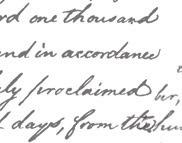 rd one thousand
and in accordance
ly proclaimed
days, from the